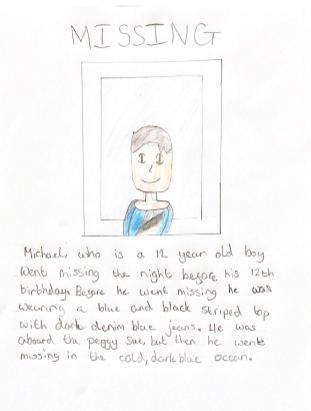 MISSING
Michael, who is a 12 year old boy
went missing the night before his 12th
birthday. Before he went missing he was
wearing a blue and black striped top
with dark denim blue jeans. He was
aboard the peggy sue, but then he went
missing in the cold, dark blue ocean.